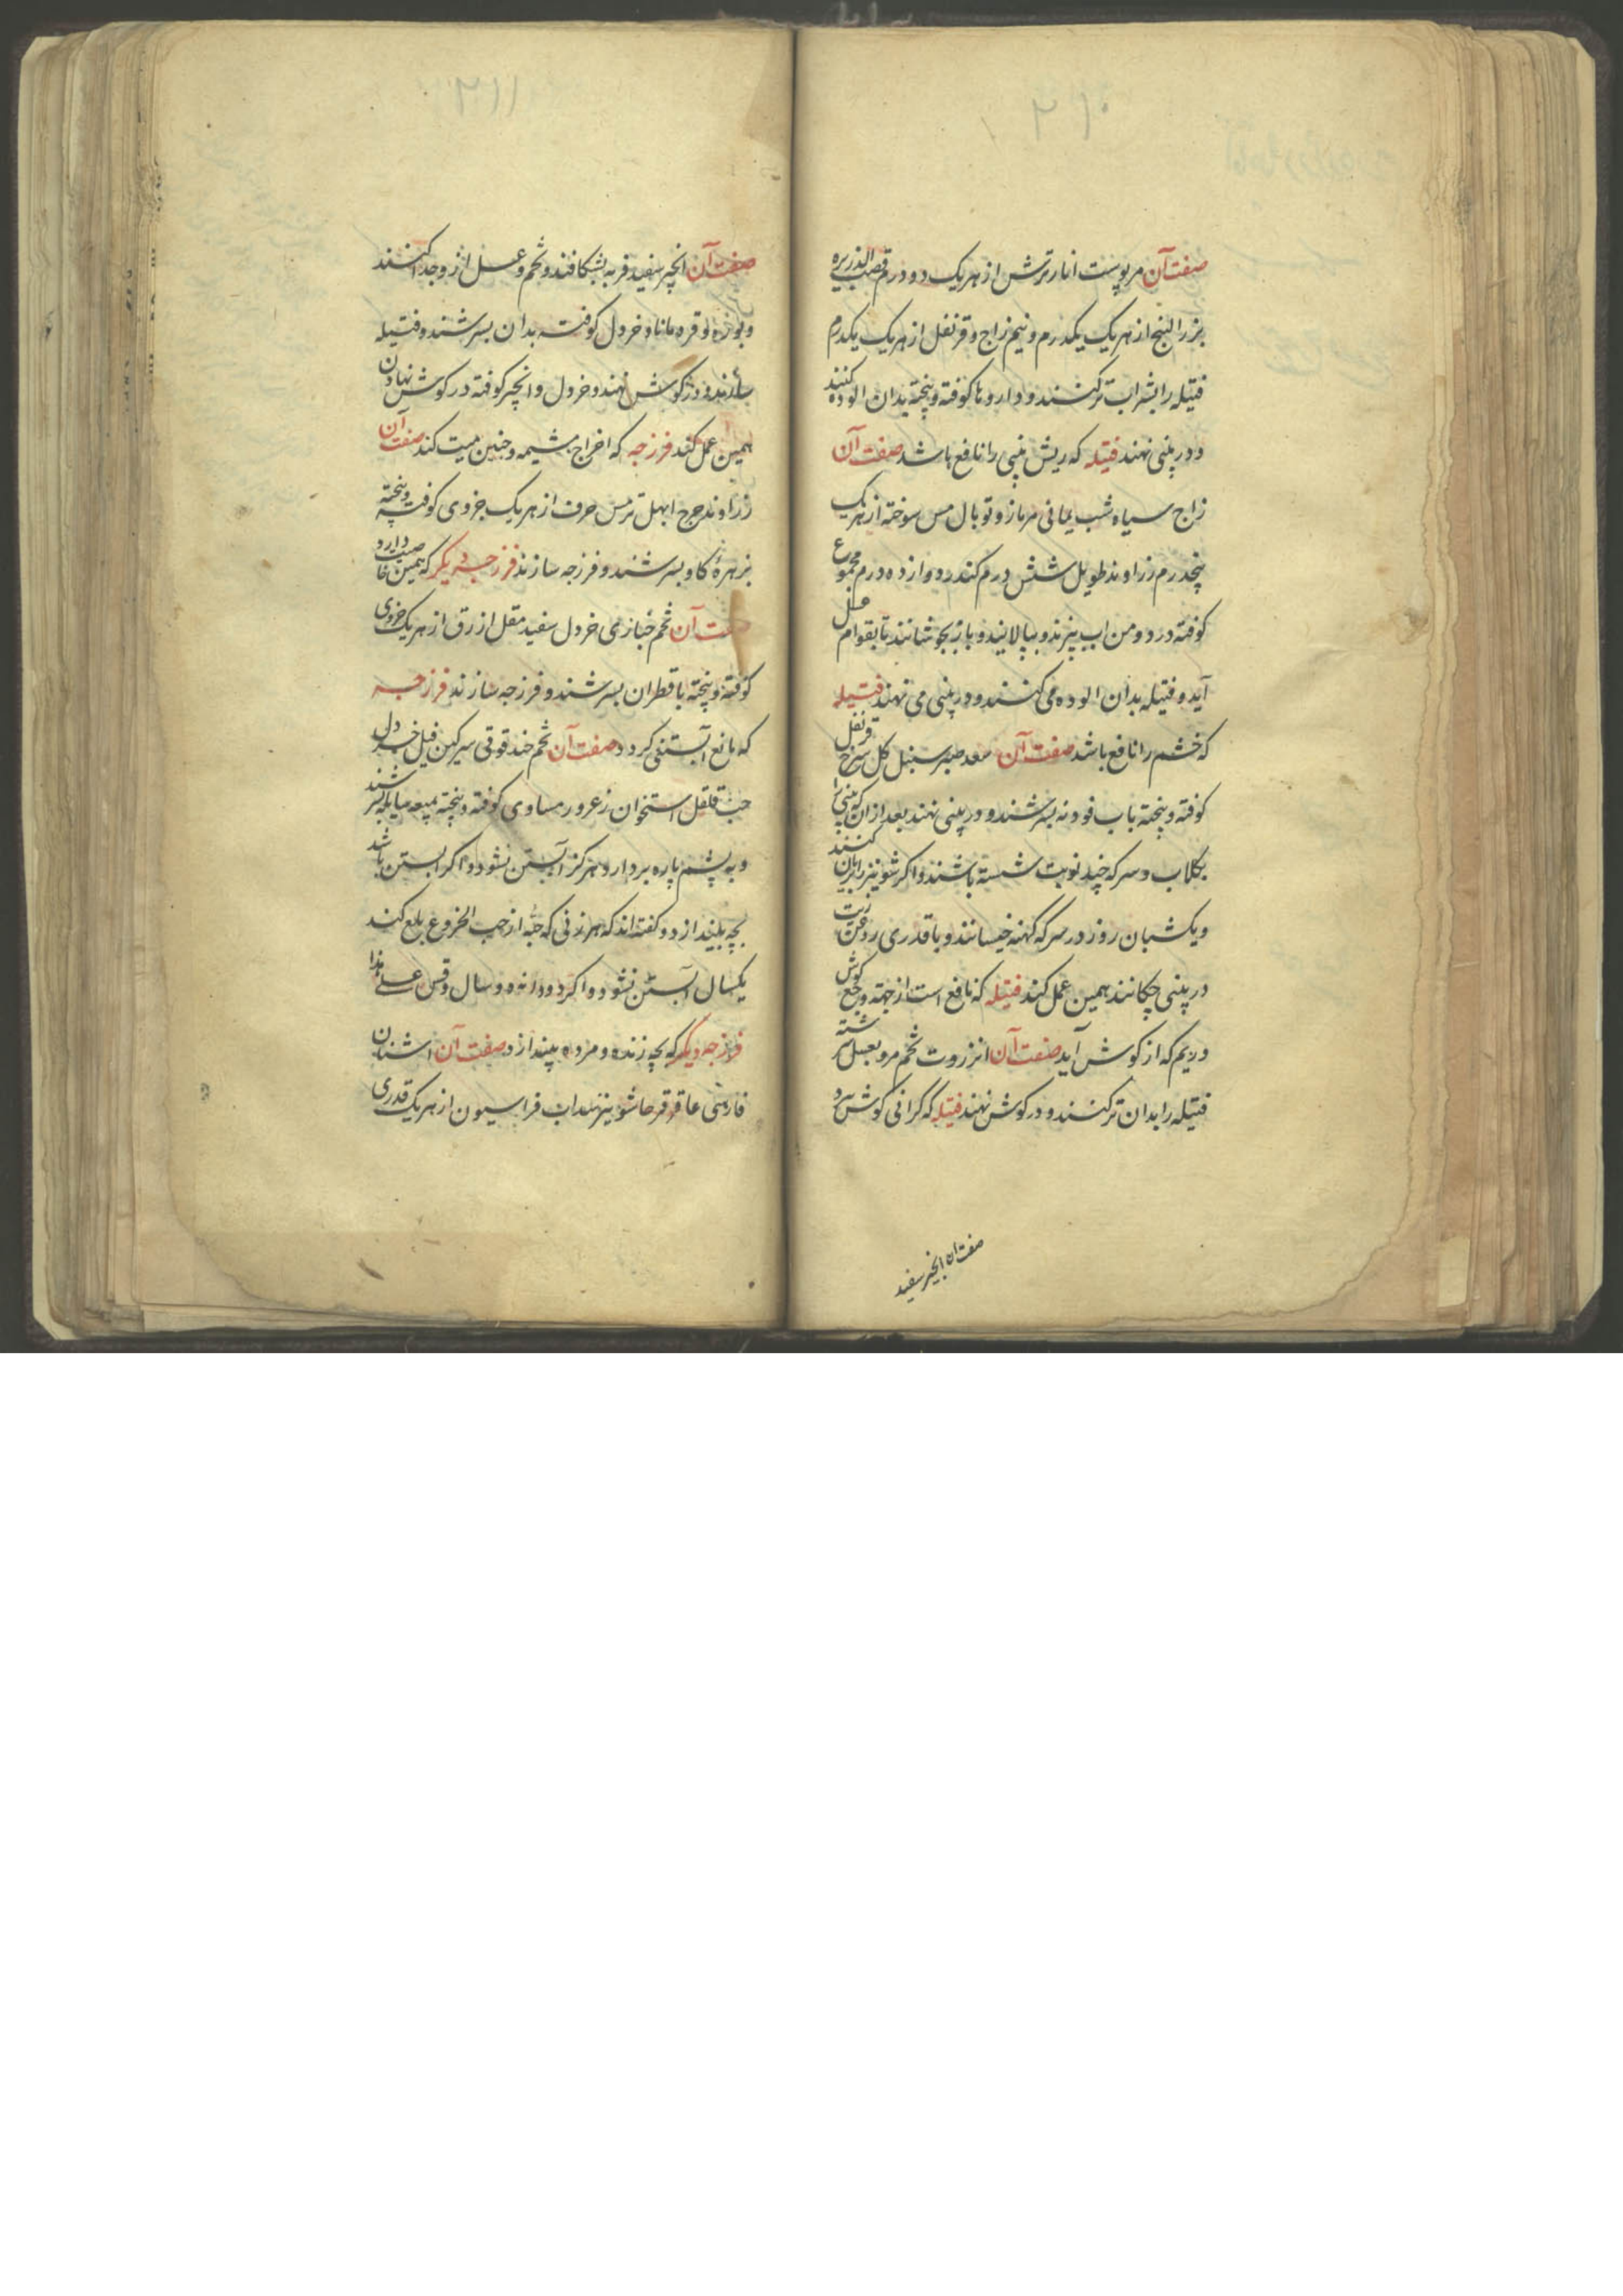 صفت آن مر پوست انار ترش از هر یک دو درم قصب الذریره
بزر البنج از هر یک یکدرم و نیم زاج و قرنفل از هر یک یکدرم
فتیله را بشراب تر کنند و داروها کوفته و پخته بدان الوده کنند
و در بینی نهند فتیله که ریش بینی را نافع باشد صفت آن
زاج سیاه شب یمانی مر مازو توبال مس سوخته از هر یک
پنجدرم زراوند طویل شش درم کندر دوازده درم مجموع
کوفته در دو من اب بپزند و بپالایند و باز بجوشانند تا بقوام عسل
آید و فتیله بدان الوده می کنند و در بینی می نهند فتیله
که خشم را نافع باشد صفت آن سعد صبر سنبل کل سرخ قرنفل
کوفته و پخته باب فودنه بسرشند و در بینی نهند بعد از ان که بینی را
بکلاب و سرکه چند نوبت شسته باشند و اکر شونیز را بریان کنند
و یکشبان روز در سرکه کهنه خیسانند و با قدری روغن زیت
در بینی چکانند همین عمل کند فتیله که نافع است از جهة وجع کوش
و ریم که از کوش آید صفت آن انزروت تخم مرو بعسل سرشته
فتیله را بدان تر کنند و در کوش نهند فتیله که کرانی کوش برد
صفت ان انجیر سفید
صفت آن انجیر سفید فربه بشکافند و تخم و عسل از و جدا کنند
و بوزه و قرده مانا و خردل کوفته بدان بسرشند و فتیله
سازند و در کوش نهند و خردل و انجیر کوفته در کوش نهادن
همین عمل کند فرزجه که اخراج مشیمه و جنین میت کند صفت آن
زراوند مدحرج ابهل ترمس حرف از هر یک جزوی کوفته و پخته
بزهرهٔ کاو بسرشند و فرزجه سازند فرزجه دیکر که همین خاصیت دارد
صفت آن تخم خبازی خردل سفید مقل ازرق از هر یک جزوی
کوفته و پخته با قطران بسرشند و فرزجه سازند فرزجه
که مانع آبستنی کردد صفت آن تخم حندقوقی سرکین فیل خردل
حب قلقل استخوان زعرور مساوی کوفته و پخته بمیعه سایله بسرشند
و به پشم پاره بردارد هرکز آبستن نشود و اکر ابستن باشد
بچه بیندازد و کفته اند که هر زنی که حبه از حب الخروع بلع کند
یکسال آبستن نشود و اکر دو دانه دو سال و قس علی هذا
فرزجه دیکر که بچه زنده و مرده بیندازد صفت آن اشنان
فارسی عاقرقرحا شونیز سداب فراسیون از هر یک قدری